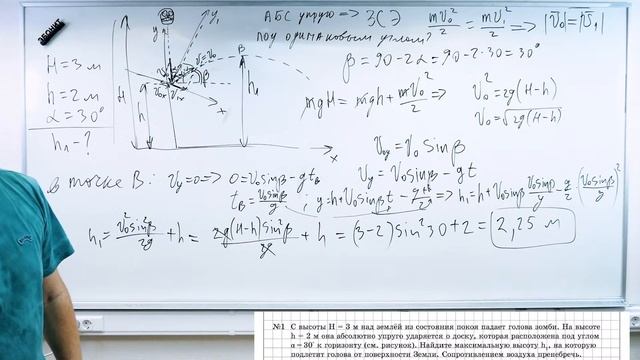 ЭБОНИТ
H = 3 м
h = 2 м
α = 30°
h₁ - ?
АБС упруго => ЗСЭ mV₀²/2 = mV₁²/2 => |V₀| = |V₁|
под одинаковым углом?
β = 90 - 2α = 90 - 2·30 = 30°
mgH = mgh + mV₀²/2 => V₀² = 2g(H-h)
V₀ = √2g(H-h)
V₀y = V₀ sinβ
Vy = V₀sinβ - gt
в точке B: Vy = 0 => 0 = V₀sinβ - gtB
tB = V₀sinβ/g ; y = h + V₀sinβ t - gt²/2 => h₁ = h + V₀sinβ V₀sinβ/g - g/2 (V₀sinβ/g)²
h₁ = V₀²sin²β/2g + h = 2g(H-h)sin²β/2g + h = (3-2)sin²30 + 2 = 2,25 м
H
h
y
y₁
B
β
h₁
x
x
№1 С высоты H = 3 м над землёй из состояния покоя падает голова зомби. На высоте
h = 2 м она абсолютно упруго ударяется о доску, которая расположена под углом
α = 30° к горизонту (см. рисунок). Найдите максимальную высоту h₁, на которую
подлетит голова от поверхности Земли. Сопротивлением воздуха пренебречь.